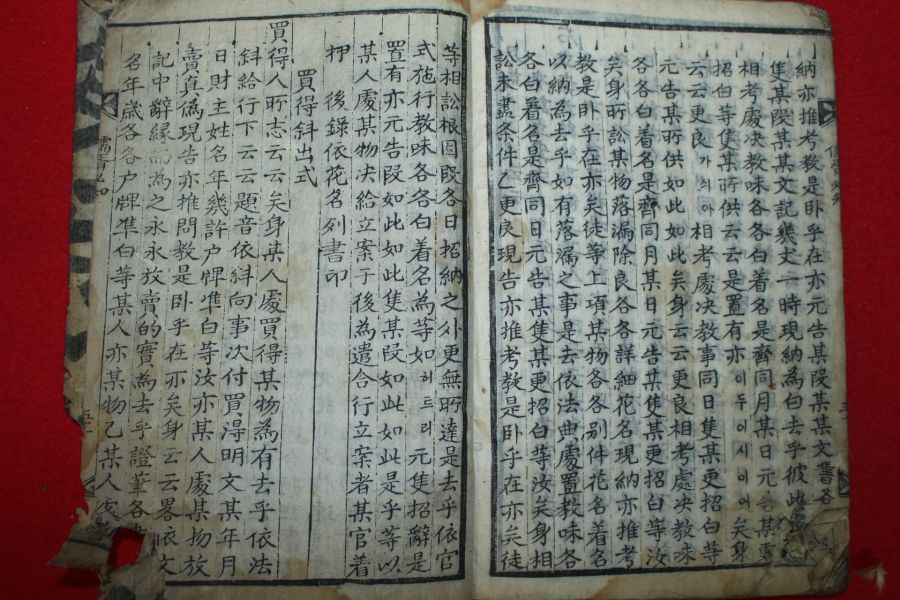 納亦推考教是卧乎在亦元告某段某某文書各
隻某段某某文記幾丈一時現納為白去乎彼此
相考處决教味各各白着名是齊同月某日元告某
招白等隻某所供云云是置有亦이두이시이여矣身
云云更良가의아相考處决教事同日隻某更招白等
元告某所供如此如此矣身云云更良相考處决教味
各各白着名是齊同月某日元告某隻某更招白等汝
矣身所訟某物落漏除良各各詳細花名現納亦推考
教是卧乎在亦矣徒等上項某物各各别件花名着名
以納為去乎如有落漏之事是去依法典處置教味各
各白着名是齊同日元告某隻某更招白等汝矣身相
訟未盡条件乙更良現告亦推考教是卧乎在亦矣徒
等相訟根因段各日招納之外更無所達是去乎依官
式施行教味各各白着名為等如히드러元隻招辭是
置有亦元告段如此如此隻某段如此如此是乎等以
某人處某物决給立案于後為遣合行立案者某官着
押 後錄依花名列書印
買得斜出式
買得人所志云云矣身某人處買得某物為有去乎依法
斜給行下云云題音依斜向事次付買得明文某年月
日財主姓名年幾許户牌準白等汝亦某人處某物放
賣真偽現告亦推問教是卧乎在亦矣身云云畧依文
記中辭緣為之永永放賣的實為去乎證筆各
名年歲各各户牌準白等某人亦某物乙某人處
儒胥必知